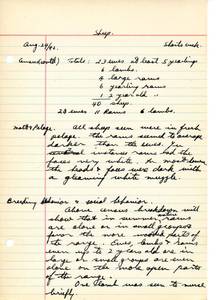 Sheep.
Aug. 29/42. Shorts creek.
Totals: 23 ewes at least 5 yearlings
6 lambs.
4 large rams
6 yearling rams
1 2 year old "
40 sheep
23 ewes 11 Rams 6 lambs.
Moult & Pelage. All sheep seen were in fresh
pelage. the rams seemed to average
darker than the ewes. In
instances rams had the
faces very white. In most however
the heads & faces were dark with
a gleaming white muzzle.
Breeding behavior & social behavior.
Above census breakdown will
show that in summer, mature rams
are alone or in small groups
in the more wooded parts of
the range. Ewes, lambs & rams
seen up to 2 years old are in
large or small groups are even
alone on the more open parts
of the range.
One lamb was seen to nurse
briefly.